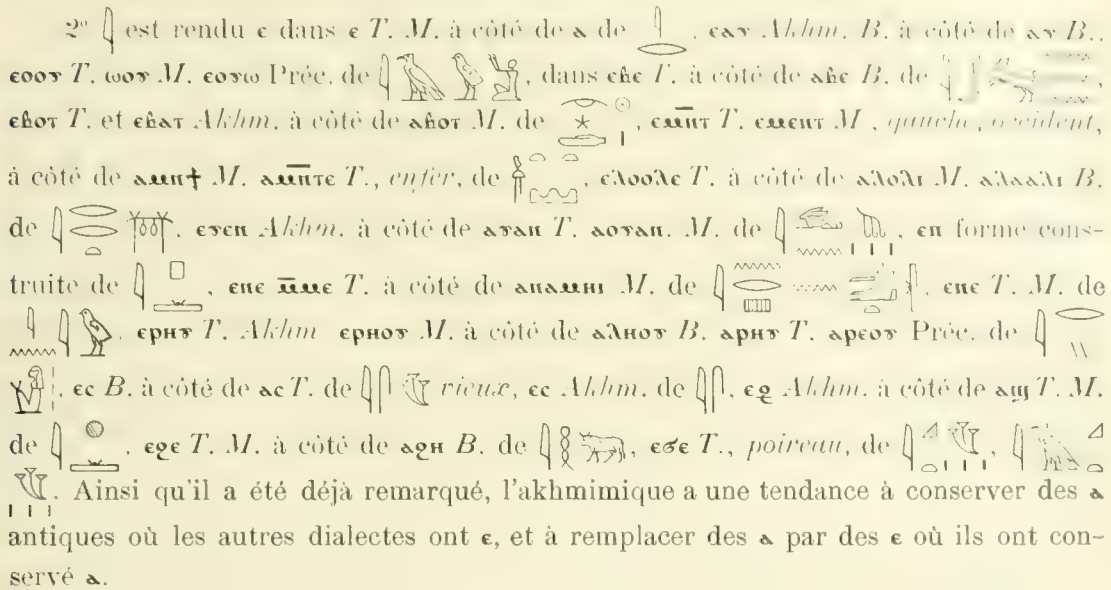 2° 𓇋 est rendu ⲉ dans ⲉ T. M. à côté de ⲁ de 𓇋𓂋, ⲉⲁⲩ Akhm. B. à côté de ⲁⲩ B.,
ⲉⲟⲟⲩ T. ⲱⲟⲩ M. ⲉⲟⲩⲱ Préc. de 𓇋𓄿𓅱𓀢, dans ⲉⲃⲉ T. à côté de ⲁⲃⲉ B. de
ⲉⲃⲟⲧ T. et ⲉⲃⲁⲧ Akhm. à côté de ⲁⲃⲟⲧ M. de , ⲉⲙⲛ̅ⲧ T. ⲉⲙⲉⲛⲧ M., gauche, occident,
à côté de ⲁⲙⲉⲛϯ M. ⲁⲙⲛ̅ⲧⲉ T., enfer, de , ⲉⲗⲟⲟⲗⲉ T. à côté de ⲁⲗⲟⲗⲓ M. ⲁⲗⲁⲁⲗⲓ B.
de 𓇋𓂋𓂋𓏏 , ⲉⲩⲉⲛ Akhm. à côté de ⲁⲩⲁⲛ T. ⲁⲟⲩⲁⲛ. M. de 𓇋 , ⲉⲛ forme cons-
truite de 𓇋 , ⲉⲛⲉ ⲙ̅ⲙⲉ T. à côté de ⲁⲛⲁⲙⲏⲓ M. de 𓇋𓈖𓂋 , ⲉⲛⲉ T. M. de
𓇋𓈖𓇋𓅱, ⲉⲣⲏⲩ T. Akhm ⲉⲣⲏⲟⲩ M. à côté de ⲁⲗⲏⲟⲩ B. ⲁⲣⲏⲩ T. ⲁⲣⲉⲟⲩ Préc. de 𓇋𓂋𓏭
, ⲉⲥ B. à côté de ⲁⲥ T. de 𓇋𓋴 vieux, ⲉⲥ Akhm. de 𓇋𓋴, ⲉϩ Akhm. à côté de ⲁϣ T. M.
de 𓇋𓐍 , ⲉϩⲉ T. M. à côté de ⲁϩⲏ B. de 𓇋𓎛𓃒, ⲉϭⲉ T., poireau, de 𓇋𓈎𓏏 , 𓇋
. Ainsi qu'il a été déjà remarqué, l'akhmimique a une tendance à conserver des ⲁ
antiques où les autres dialectes ont ⲉ, et à remplacer des ⲁ par des ⲉ où ils ont con-
servé ⲁ.